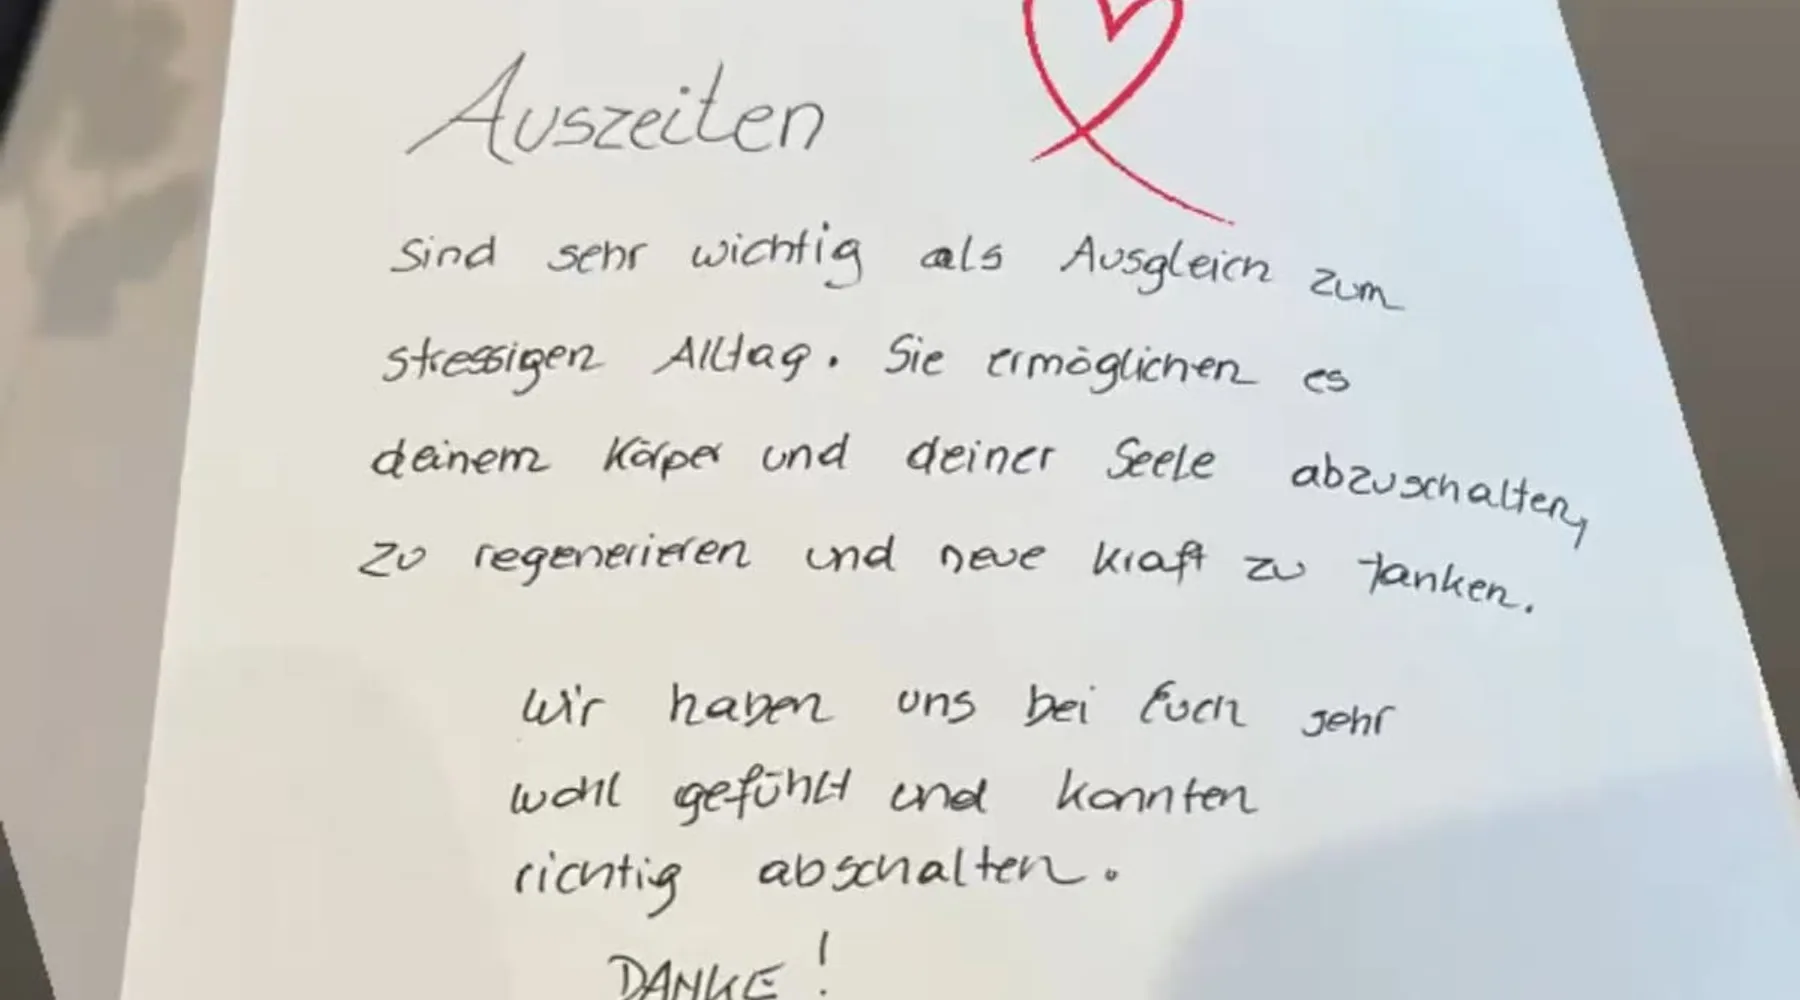 Auszeiten
sind sehr wichtig als Ausgleich zum
stressigen Alltag. Sie ermöglichen es
deinem Körper und deiner Seele abzuschalten,
zu regenerieren und neue Kraft zu tanken.
Wir haben uns bei Euch sehr
wohl gefühlt und konnten
richtig abschalten.
DANKE!